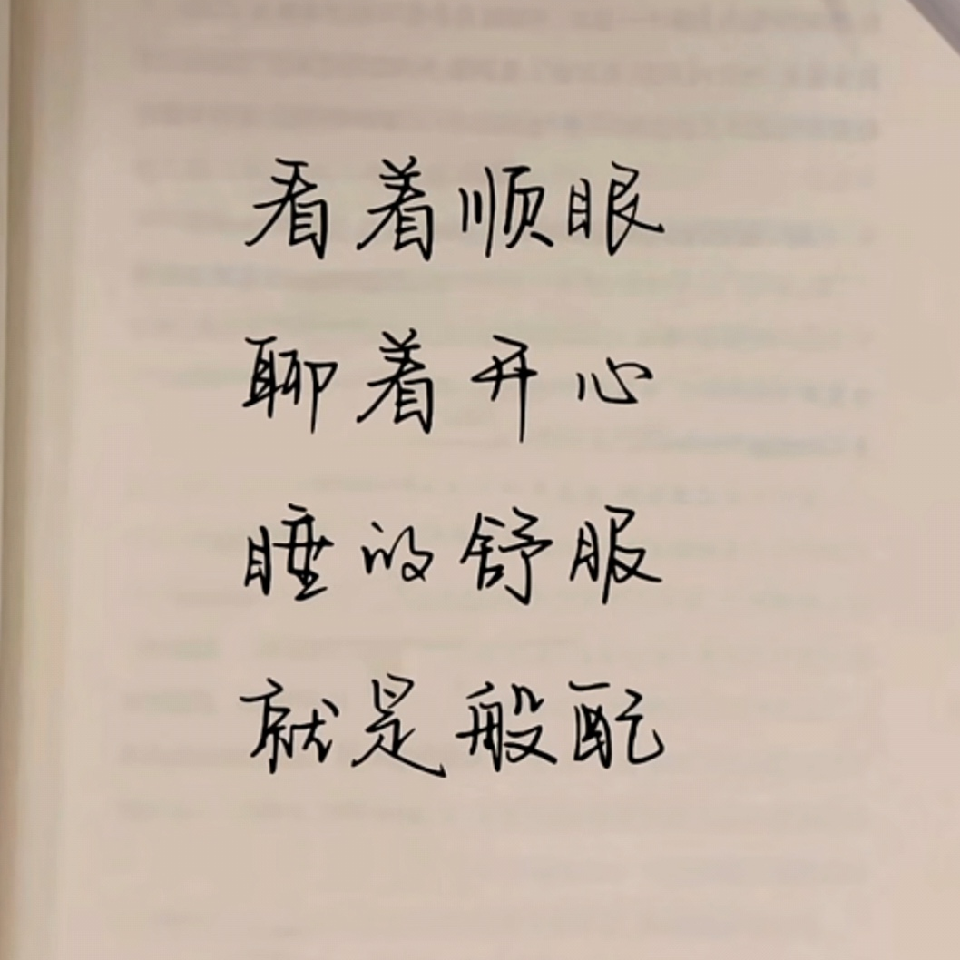 看着顺眼
聊着开心
睡的舒服
就是般配